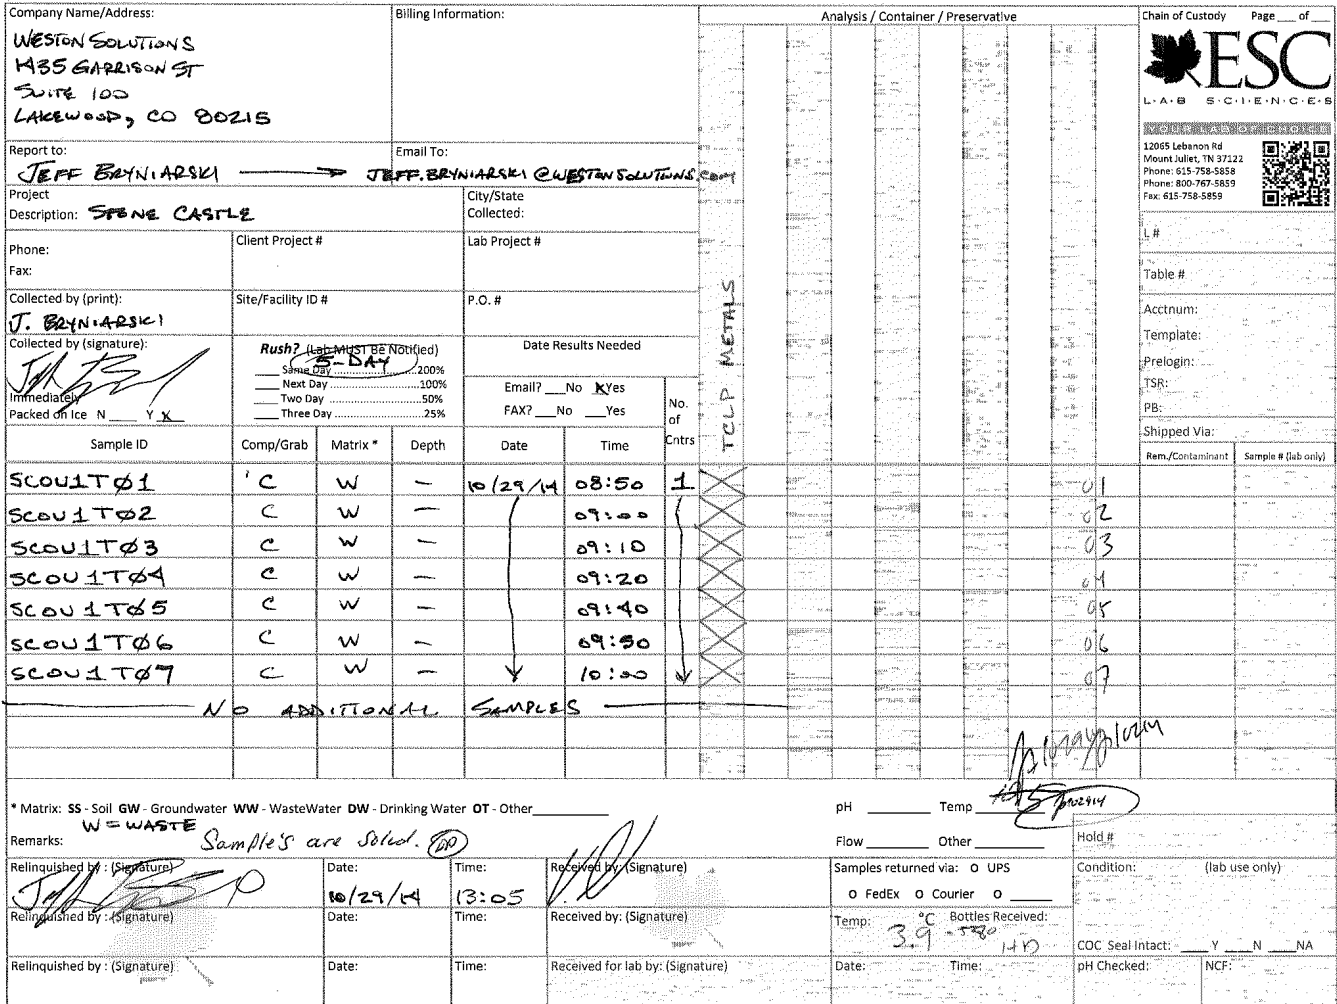 Company Name/Address:
WESTON SOLUTIONS
1435 GARRISON ST
SUITE 100
LAKEWOOD, CO 80215
Billing Information:
Analysis / Container / Preservative
Chain of Custody Page ___ of ___
ESC
L·A·B S·C·I·E·N·C·E·S
YOUR LAB OF CHOICE
12065 Lebanon Rd
Mount Juliet, TN 37122
Phone: 615-758-5858
Phone: 800-767-5859
Fax: 615-758-5859
Report to:
JEFF BRYNIARSKI
Email To:
JEFF.BRYNIARSKI@WESTONSOLUTIONS.com
Project
Description: STONE CASTLE
City/State
Collected:
Phone:
Fax:
Client Project #
Lab Project #
Collected by (print):
J. BRYNIARSKI
Site/Facility ID #
P.O. #
Collected by (signature):
Immediately
Packed on Ice N ___ Y X
Rush? (Lab MUST Be Notified)
5-DAY
___ Same Day ...200%
___ Next Day ...100%
___ Two Day ...50%
___ Three Day ...25%
Date Results Needed
Email? ___No XYes
FAX? ___No ___Yes
No.
of
Cntrs
TCLP METALS
L #
Table #
Acctnum:
Template:
Prelogin:
TSR:
PB:
Shipped Via:
Sample ID Comp/Grab Matrix * Depth Date Time
Rem./Contaminant Sample # (lab only)
SCOU1TØ1 C W - 10/29/14 08:50 1 X 01
SCOU1TØ2 C W - 09:00 X 02
SCOU1TØ3 C W - 09:10 X 03
SCOU1TØ4 C W - 09:20 X 04
SCOU1TØ5 C W - 09:40 X 05
SCOU1TØ6 C W - 09:50 X 06
SCOU1TØ7 C W - 10:00 X 07
NO ADDITIONAL SAMPLES
* Matrix: SS - Soil GW - Groundwater WW - WasteWater DW - Drinking Water OT - Other
W = WASTE
Remarks: Sample's are Solid.
pH ___ Temp ___
Flow ___ Other ___
Hold #
Relinquished by : (Signature)
Date:
10/29/14
Time:
13:05
Received by: (Signature)
Samples returned via: O UPS
O FedEx O Courier O ___
Condition: (lab use only)
Relinquished by : (Signature)
Date:
Time:
Received by: (Signature)
Temp: 3.9 °C Bottles Received:
COC Seal Intact: ___ Y ___ N ___ NA
Relinquished by : (Signature)
Date:
Time:
Received for lab by: (Signature)
Date: Time:
pH Checked: NCF: